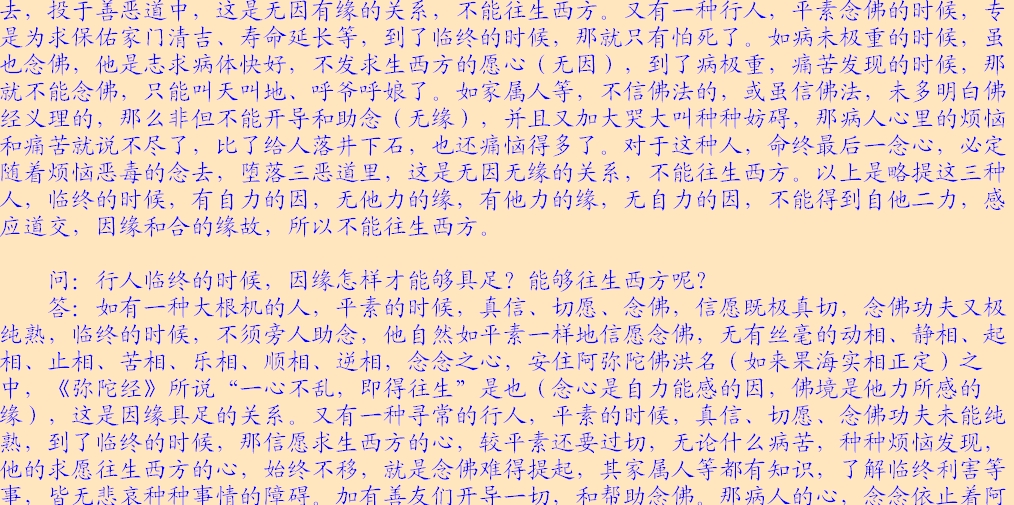 去，投于善恶道中，这是无因有缘的关系，不能往生西方。又有一种行人，平素念佛的时候，专
是为求保佑家门清吉、寿命延长等，到了临终的时候，那就只有怕死了。如病未极重的时候，虽
也念佛，他是志求病体快好，不发求生西方的愿心（无因），到了病极重，痛苦发现的时候，那
就不能念佛，只能叫天叫地、呼爷呼娘了。如家属人等，不信佛法的，或虽信佛法，未多明白佛
经义理的，那么非但不能开导和助念（无缘），并且又加大哭大叫种种妨碍，那病人心里的烦恼
和痛苦就说不尽了，比了给人落井下石，也还痛恼得多了。对于这种人，命终最后一念心，必定
随着烦恼恶毒的念去，堕落三恶道里，这是无因无缘的关系，不能往生西方。以上是略提这三种
人，临终的时候，有自力的因，无他力的缘，有他力的缘，无自力的因，不能得到自他二力，感
应道交，因缘和合的缘故，所以不能往生西方。
问：行人临终的时候，因缘怎样才能够具足？能够往生西方呢？
答：如有一种大根机的人，平素的时候，真信、切愿、念佛，信愿既极真切，念佛功夫又极
纯熟，临终的时候，不须旁人助念，他自然如平素一样地信愿念佛，无有丝毫的动相、静相、起
相、止相、苦相、乐相、顺相、逆相，念念之心，安住阿弥陀佛洪名（如来果海实相正定）之
中，《弥陀经》所说“一心不乱，即得往生”是也（念心是自力能感的因，佛境是他力所感的
缘），这是因缘具足的关系。又有一种寻常的行人，平素的时候，真信、切愿、念佛功夫未能纯
熟，到了临终的时候，那信愿求生西方的心，较平素还要过切，无论什么病苦，种种烦恼发现，
他的求愿往生西方的心，始终不移，就是念佛难得提起，其家属人等都有知识，了解临终利害等
事，皆无悲哀种种事情的障碍。加有善友们开导一切，和帮助念佛。那病人的心，念念依止着阿